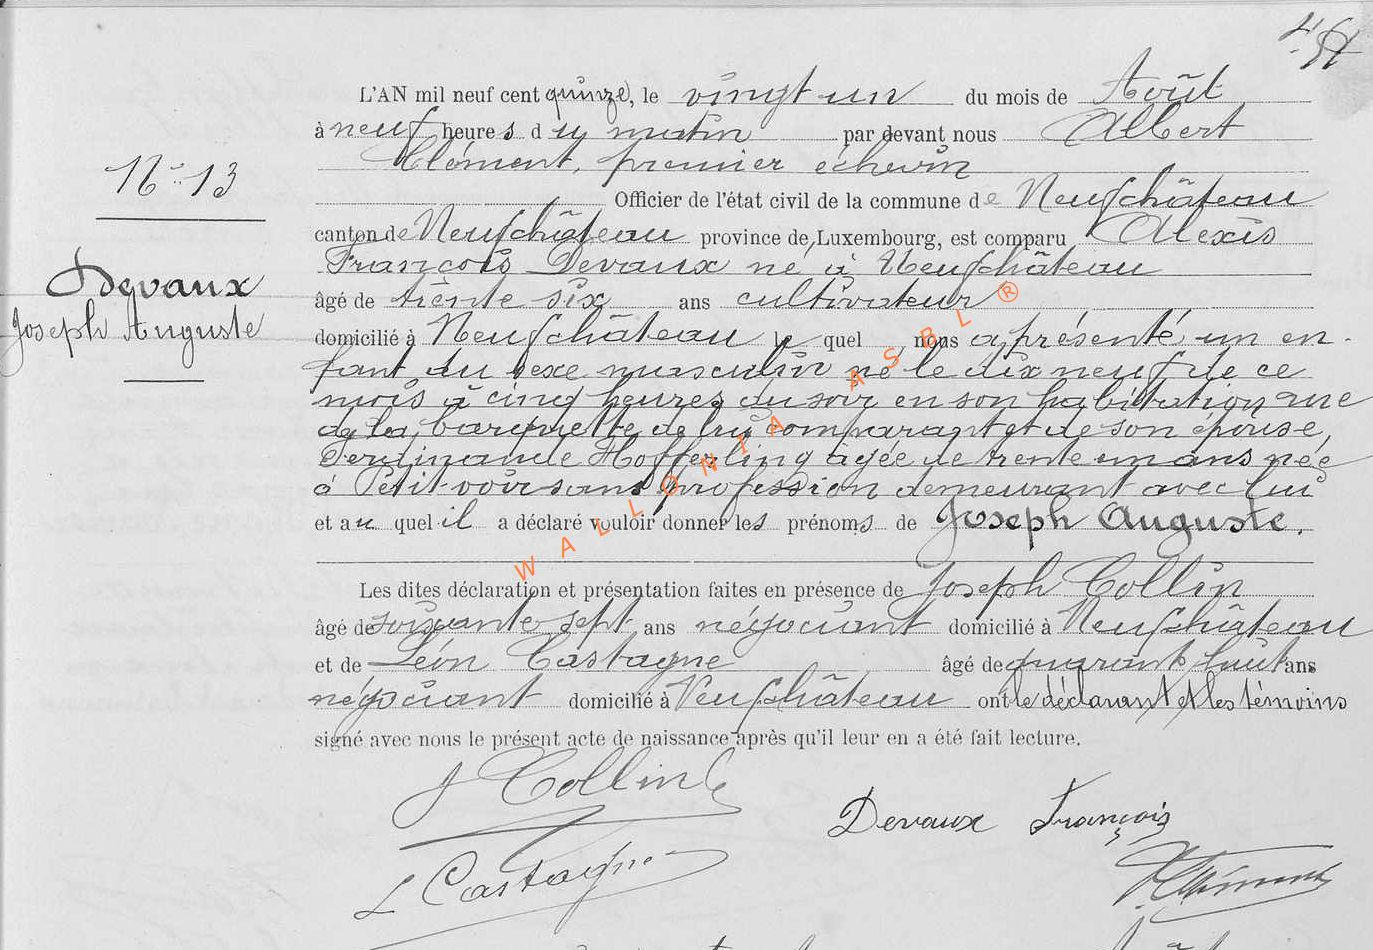 L'AN mil neuf cent quinze, le vingt un du mois de Août
à neuf heures du matin par devant nous Albert
Clément, premier échevin
Officier de l'état civil de la commune de Neufchâteau
N° 13
canton de Neufchâteau province de Luxembourg, est comparu Alexis
François Devaux né à Neufchâteau
Devaux
Joseph Auguste
âgé de trente six ans cultivateur
domicilié à Neufchâteau le quel nous a présenté un en-
fant du sexe masculin né le dix neuf de ce
mois à cinq heures du soir en son habitation rue
de la barquette de lui comparant et de son épouse,
Ferdinande Hofferling âgée de trente un ans née
à Petitvoir sans profession demeurant avec lui
et au quel il a déclaré vouloir donner les prénoms de Joseph Auguste.
Les dites déclaration et présentation faites en présence de Joseph Collin
âgé de soixante sept ans négociant domicilié à Neufchâteau
et de Léon Castagne âgé de quarante huit ans
négociant domicilié à Neufchâteau ont le déclarant et les témoins
signé avec nous le présent acte de naissance après qu'il leur en a été fait lecture.
J Collin
Devaux François
L Castagne
A Clément
WALLONIA ASBL ®